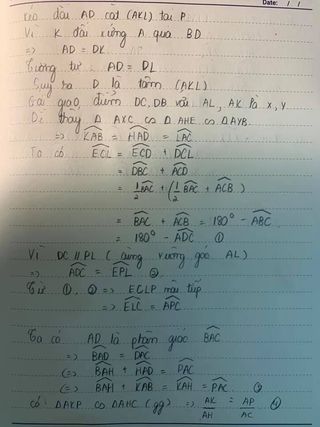 Date: / /
Kéo dài AD cắt (AKL) tại P
Vì K đối xứng A qua BD
=> AD = DK
Tương tự AD = DL
Suy ra D là tâm (AKL)
Gọi giao điểm DC, DB với AL, AK là X, Y
Dễ thấy Δ AXC ∽ Δ AHE ∽ ΔAYB.
=> KAB = HAD = LAC
Ta có ECL = ECD + DCL
= DBC + ACD
= 1/2 BAC + (1/2 BAC + ACB)
= BAC + ACB = 180° - ABC
= 180° - ADC ①
Vì DC // PL ( cùng vuông góc AL)
=> ADC = EPL ②
Từ ①, ② => ECLP nội tiếp
=> ELC = APC
Ta có AD là phân giác BAC
=> BAD = DAC
(=> BAH + HAD = PAC
(=> BAH + KAB = KAH = PAC ③
có: ΔAKP ∽ ΔAHC (gg) => AK/AH = AP/AC ④